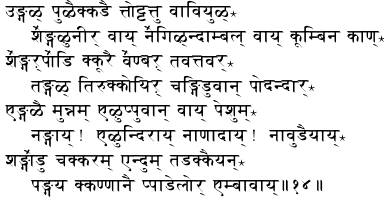 उङ्गळ् पुऴैक्कडै त्तोट्टत्तु वावियुळ्⋆
शॆङ्गऴुनीर् वाय् नॆगिऴ्न्दाम्बल् वाय् कूम्बिन काण्⋆
शॆङ्गऱ्पॊडि क्कूरै वॆण्बऱ् तवत्तवर्⋆
तङ्गळ् तिरुक्कोयिऱ् चङ्गिडुवान् पोदन्दार्⋆
ऎङ्गळै मुन्नम् ऎऴुप्पुवान् वाय् पेशुम्⋆
नङ्गाय्! ऎऴुन्दिराय् नाणादाय्! नावुडैयाय्⋆
शङ्गॊडु चक्करम् एन्दुम् तडक्कैयन्⋆
पङ्गय क्कण्णानै प्पाडेलोर् ऎम्बावाय्॥१४॥